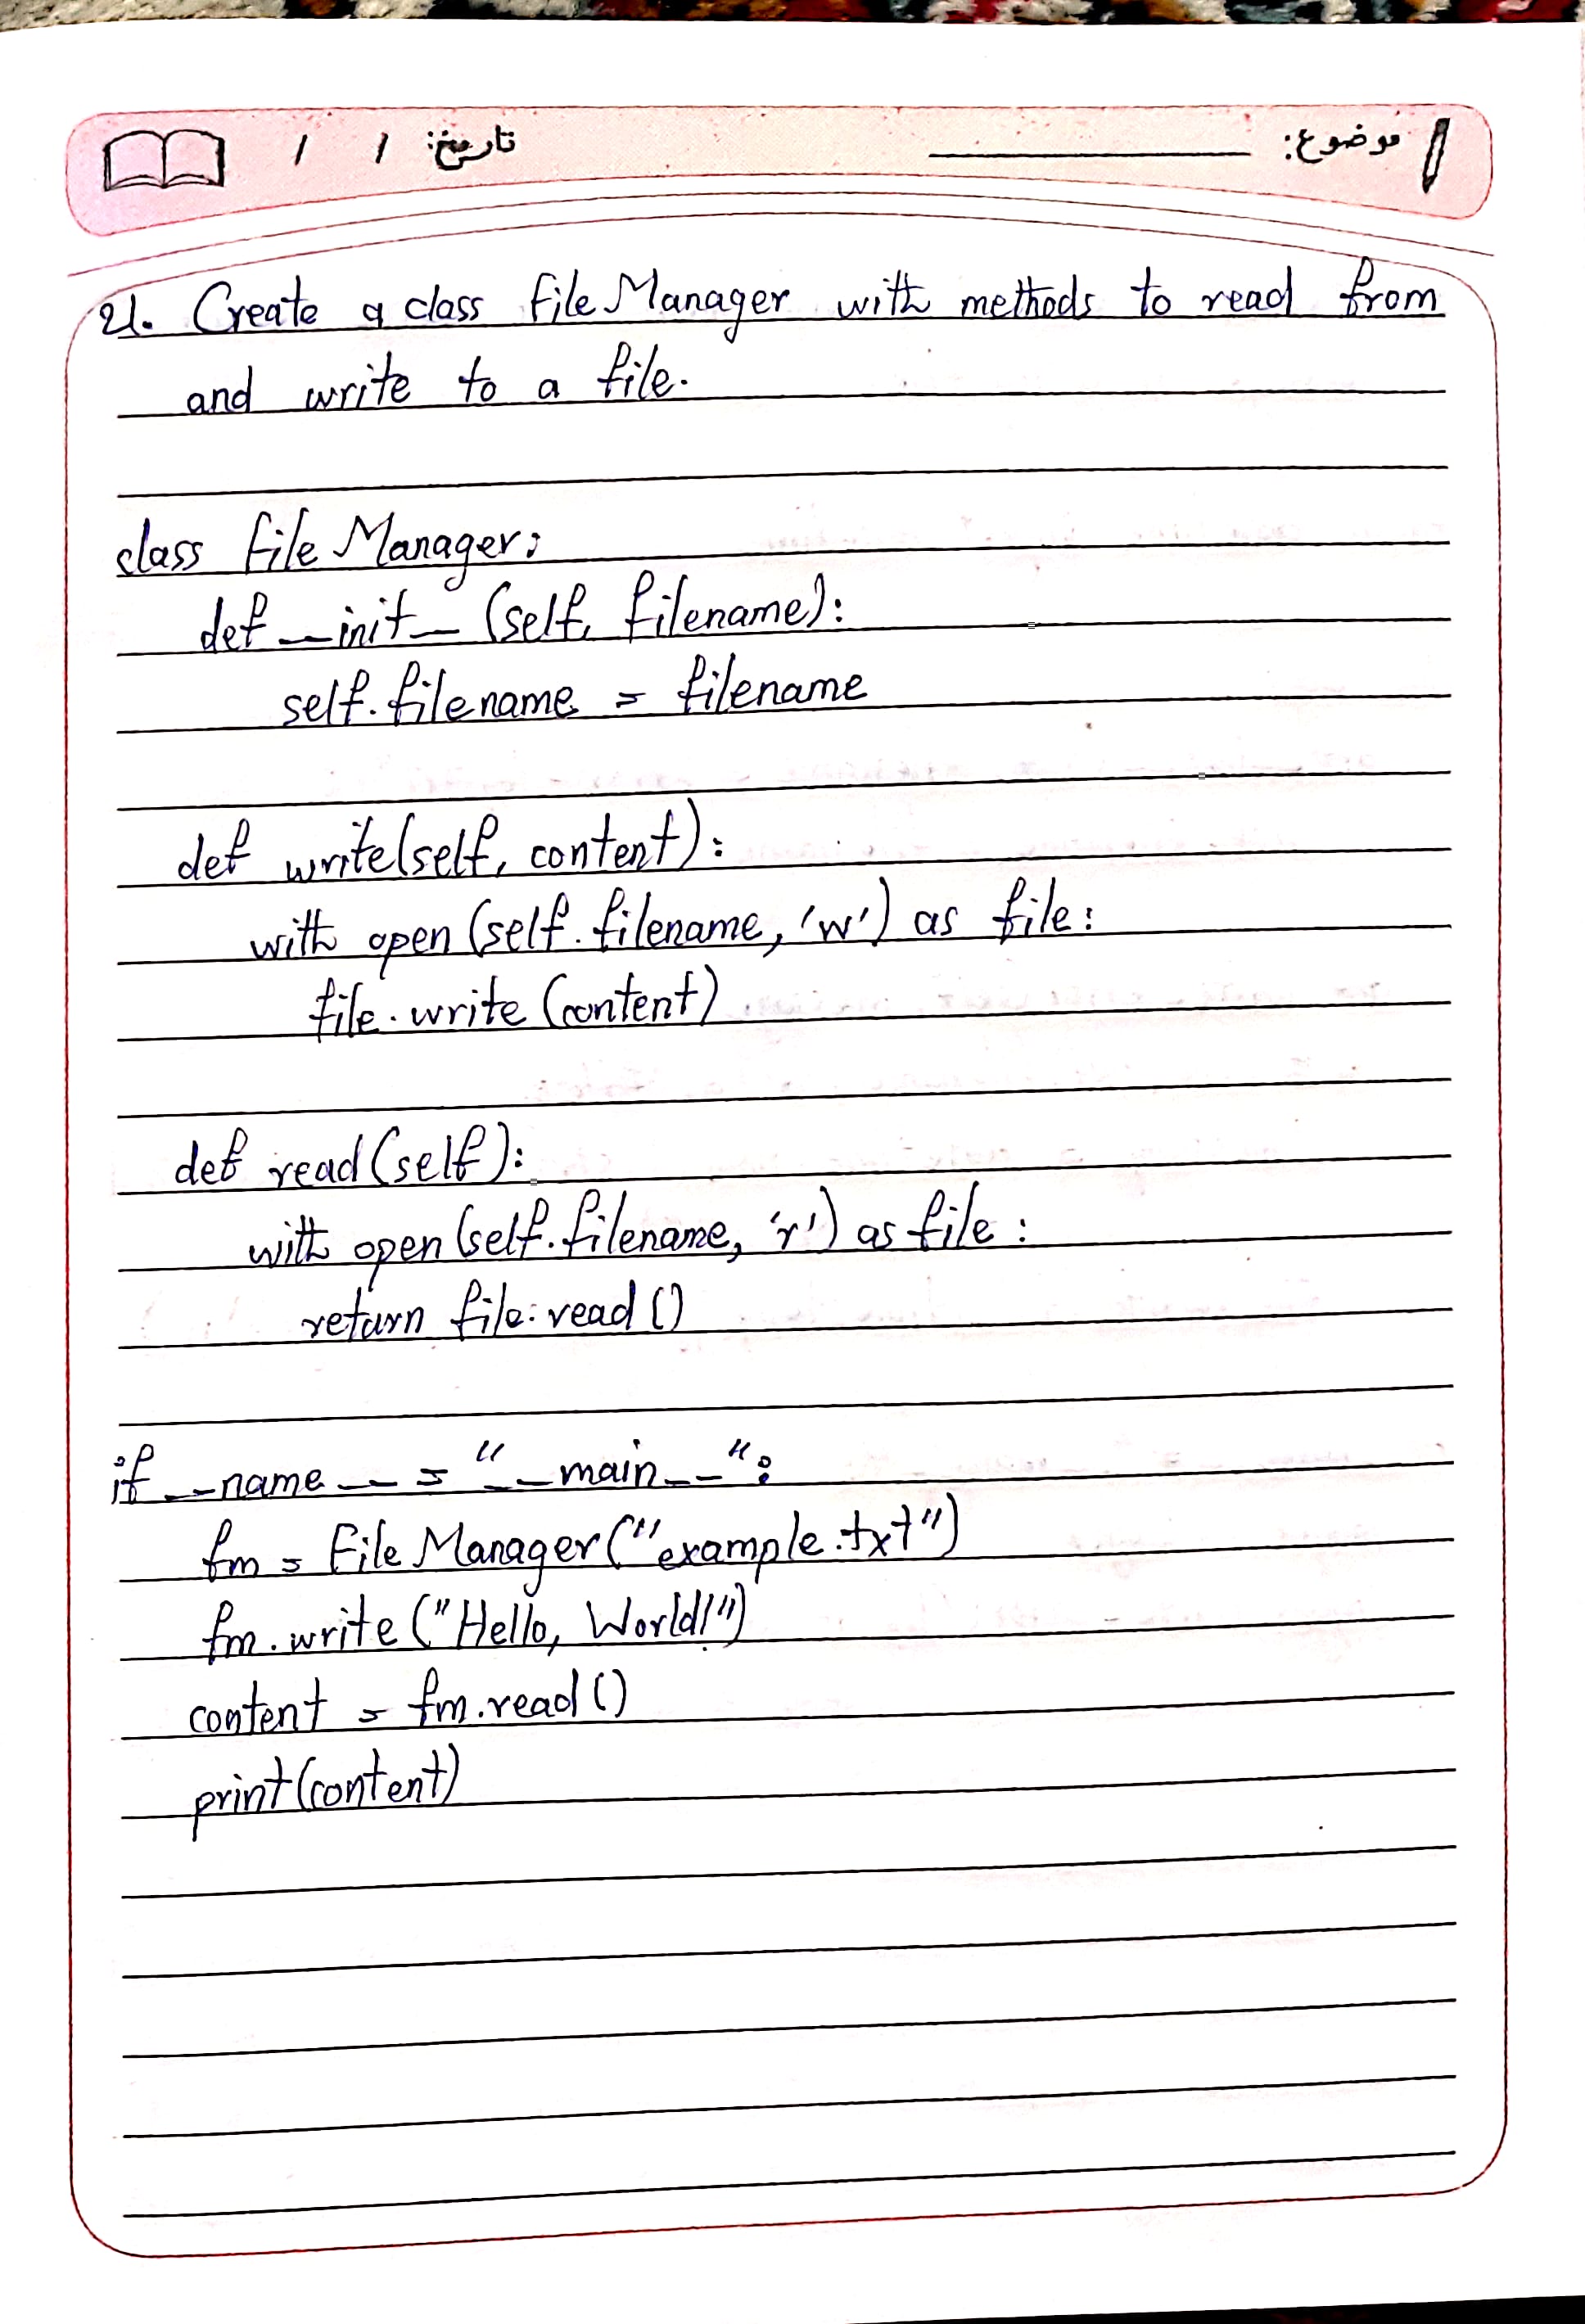 موضوع: تاریخ: / /
21. Create a class FileManager with methods to read from
and write to a file.
class FileManager:
def __init__(self, filename):
self.filename = filename
def write(self, content):
with open(self.filename, 'w') as file:
file.write(content)
def read(self):
with open(self.filename, 'r') as file:
return file.read()
if __name__ = "__main__":
fm = FileManager("example.txt")
fm.write("Hello, World!")
content = fm.read()
print(content)